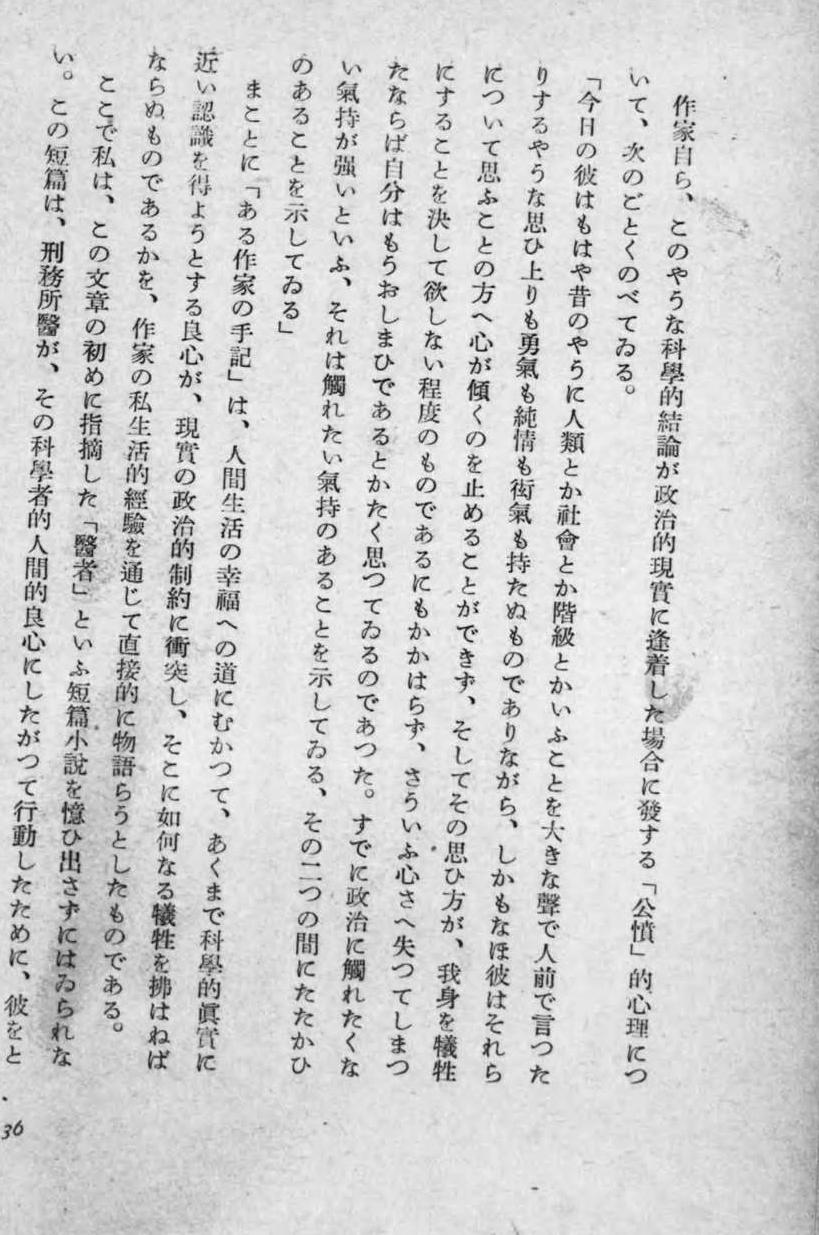 作家自ら、このやうな科學的結論が政治的現實に逢着した場合に發する「公憤」的心理につ
いて、次のごとくのべてゐる。
「今日の彼はもはや昔のやうに人類とか社會とか階級とかいふことを大きな聲で人前で言つた
りするやうな思ひ上りも勇氣も純情も衒氣も持たぬものでありながら、しかもなほ彼はそれら
について思ふことの方へ心が傾くのを止めることができず、そしてその思ひ方が、我身を犠牲
にすることを決して欲しない程度のものであるにもかかはらず、さういふ心さへ失つてしまつ
たならば自分はもうおしまひであるとかたく思つてゐるのであつた。すでに政治に觸れたくな
い氣持が强いといふ、それは觸れたい氣持のあることを示してゐる、その二つの間にたたかひ
のあることを示してゐる」
まことに「ある作家の手記」は、人間生活の幸福への道にむかつて、あくまで科學的眞實に
近い認識を得ようとする良心が、現實の政治的制約に衝突し、そこに如何なる犠牲を拂はねば
ならぬものであるかを、作家の私生活的經驗を通じて直接的に物語らうとしたものである。
ここで私は、この文章の初めに指摘した「醫者」といふ短篇小說を憶ひ出さずにはゐられな
い。この短篇は、刑務所醫が、その科學者的人間的良心にしたがつて行動したために、彼をと
36